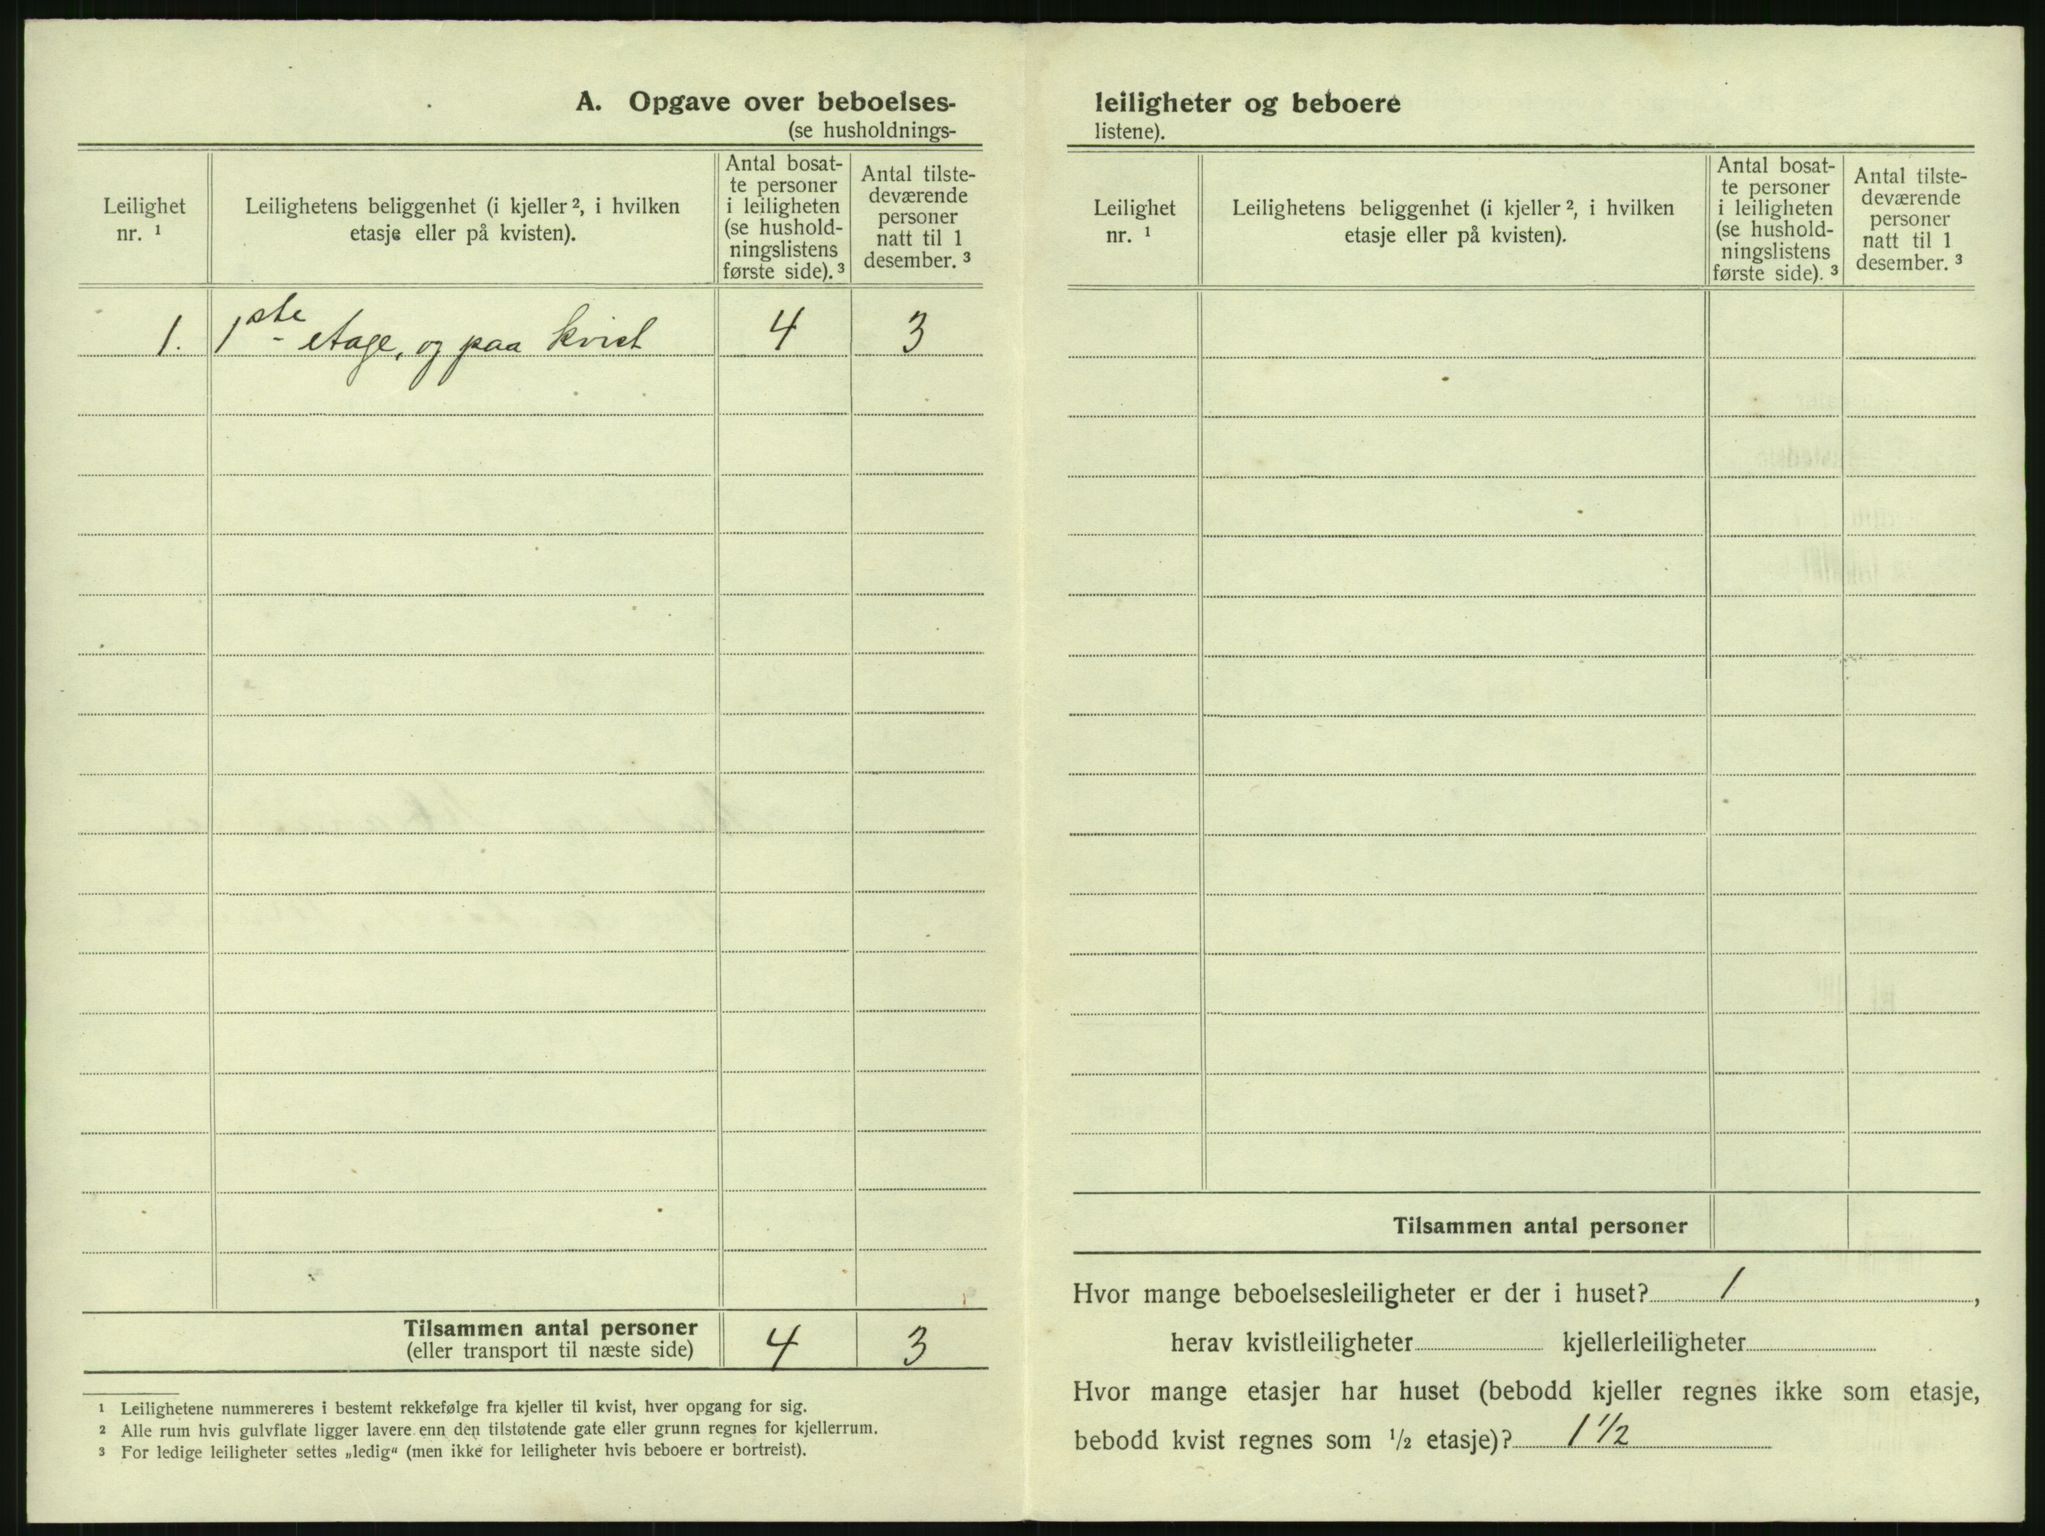 A. Opgave over beboelses-
(se husholdnings-
Leilighet
nr. ¹
Leilighetens beliggenhet (i kjeller ², i hvilken
etasje eller på kvisten).
Antal bosat-
te personer
i leiligheten
(se hushold-
ningslistens
første side). ³
Antal tilste-
deværende
personer
natt til 1
desember. ³
1. 1ste etage, og paa kvist 4 3
Tilsammen antal personer 4 3
(eller transport til næste side)
¹ Leilighetene nummereres i bestemt rekkefølge fra kjeller til kvist, hver opgang for sig.
² Alle rum hvis gulvflate ligger lavere enn den tilstøtende gate eller grunn regnes for kjellerrum.
³ For ledige leiligheter settes „ledig“ (men ikke for leiligheter hvis beboere er bortreist).
leiligheter og beboere
listene).
Leilighet
nr. ¹
Leilighetens beliggenhet (i kjeller ², i hvilken
etasje eller på kvisten).
Antal bosat-
te personer
i leiligheten
(se hushold-
ningslistens
første side). ³
Antal tilste-
deværende
personer
natt til 1
desember. ³
Tilsammen antal personer
Hvor mange beboelsesleiligheter er der i huset? 1,
herav kvistleiligheter kjellerleiligheter
Hvor mange etasjer har huset (bebodd kjeller regnes ikke som etasje,
bebodd kvist regnes som ½ etasje)? 1 ½